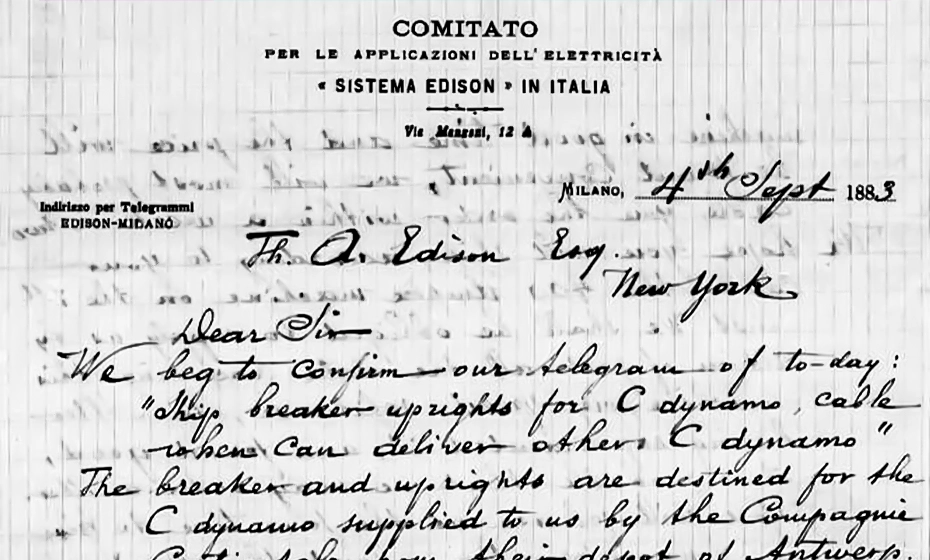 COMITATO
PER LE APPLICAZIONI DELL'ELETTRICITÀ
« SISTEMA EDISON » IN ITALIA
Via Manzoni, 12 A
MILANO, 4th Sept 1883
Indirizzo per Telegrammi
EDISON-MILANO
Th. A. Edison Esq.
New York
Dear Sir
We beg to confirm our telegram of to-day:
"Ship breaker uprights for C dynamo, cable
when can deliver other C dynamo"
The breaker and uprights are destined for the
C dynamo supplied to us by the Compagnie
Continentale from their depot at Antwerp.